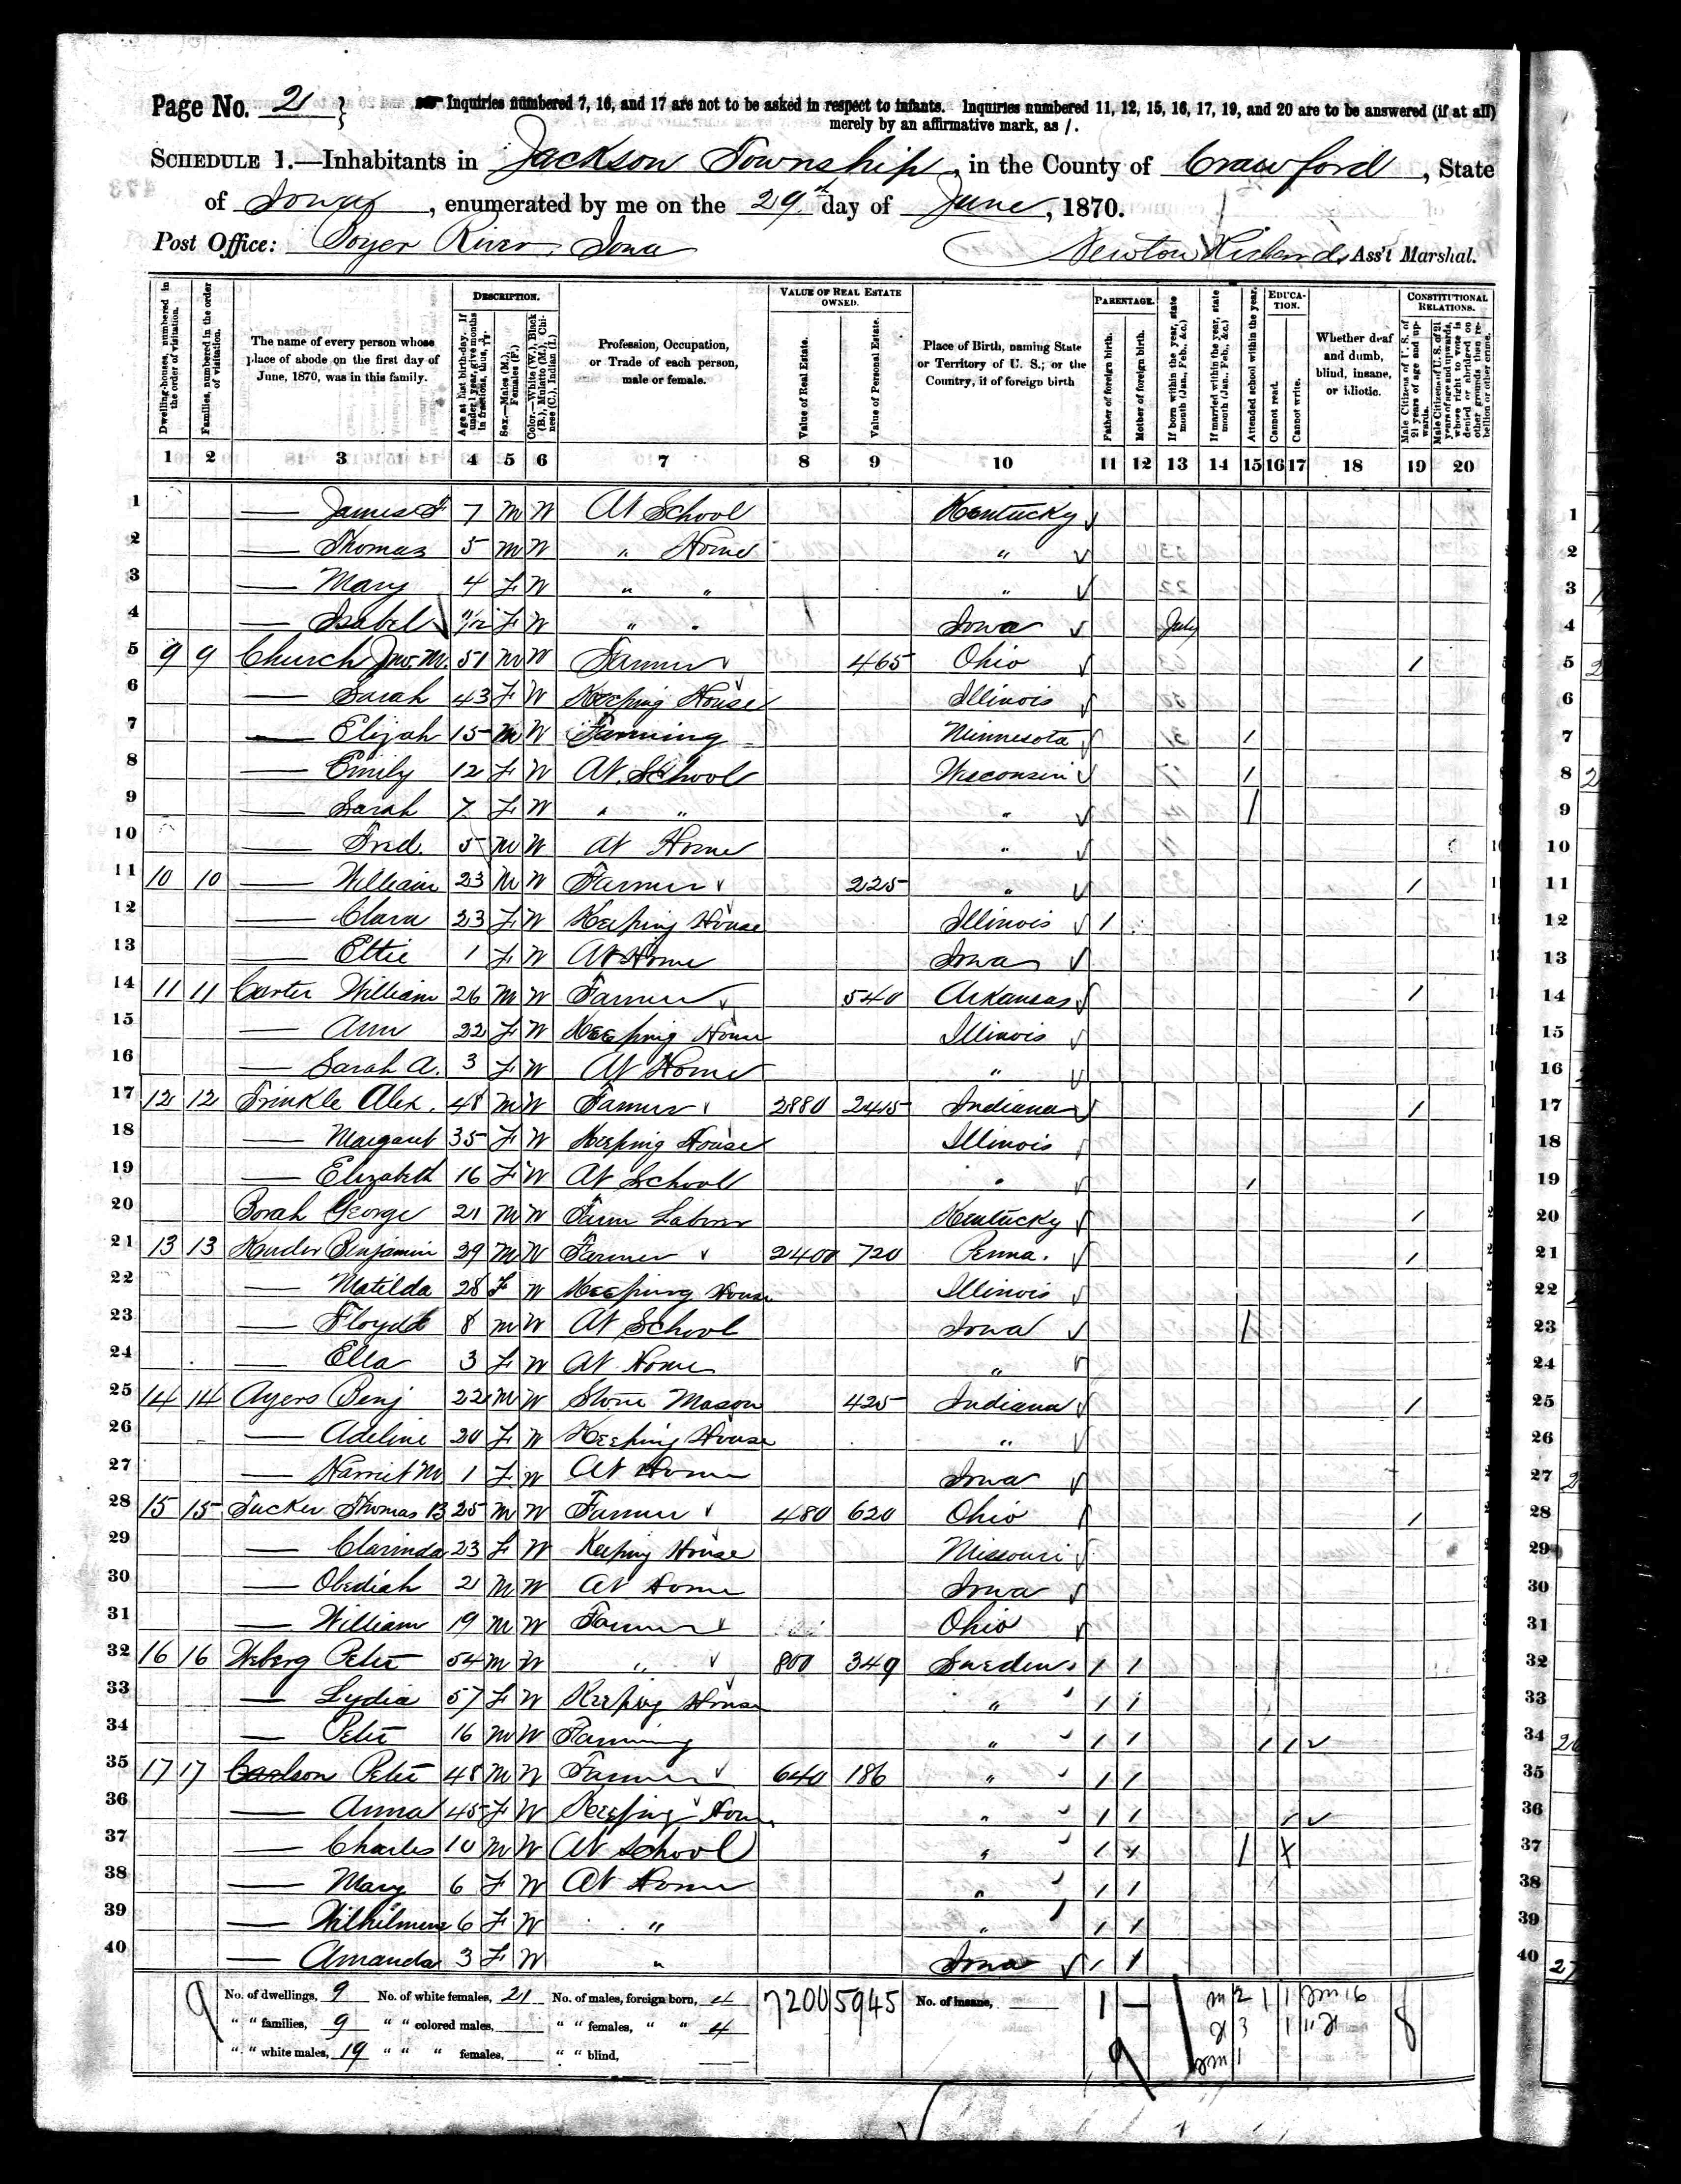 Page No. 2 } Inquiries numbered 7, 16, and 17 are not to be asked in respect to infants. Inquiries numbered 11, 12, 15, 16, 17, 19, and 20 are to be answered (if at all)
merely by an affirmative mark, as /.
SCHEDULE 1.—Inhabitants in Jackson Township, in the County of Crawford, State
of Iowa, enumerated by me on the 29th day of June, 1870.
Post Office: Boyer River, Iowa Newton Ass't Marshal.
Dwelling-houses, numbered in the order of visitation.
Families, numbered in the order of visitation.
The name of every person whose place of abode on the first day of June, 1870, was in this family.
DESCRIPTION.
Age at last birth-day. If under 1 year, give months in fractions, thus, 3/12.
Sex.—Males (M.), Females (F.)
Color.—White (W.), Black (B.), Mulatto (M.), Chinese (C.), Indian (I.)
Profession, Occupation, or Trade of each person, male or female.
VALUE OF REAL ESTATE OWNED.
Value of Real Estate.
Value of Personal Estate.
Place of Birth, naming State or Territory of U. S.; or the Country, if of foreign birth
PARENTAGE.
Father of foreign birth.
Mother of foreign birth.
If born within the year, state month (Jan., Feb., &c.)
If married within the year, state month (Jan., Feb., &c.)
Attended school within the year.
EDUCATION.
Cannot read.
Cannot write.
Whether deaf and dumb, blind, insane, or idiotic.
CONSTITUTIONAL RELATIONS.
Male Citizens of U. S. of 21 years of age and upwards.
Male Citizens of U. S. of 21 years of age and upwards, whose right to vote is denied or abridged on other grounds than rebellion or other crime.
1 2 3 4 5 6 7 8 9 10 11 12 13 14 15 16 17 18 19 20
1 — James F 7 M W At School Kentucky 1
2 — Thomas 5 M W " Home " 2
3 — Mary 4 F W " " " 3
4 — Isabel 11/12 F W " " Iowa July 4
5 9 9 Church Jno. M. 51 M W Farmer 465 Ohio 1 5
6 — Sarah 43 F W Keeping House Illinois 6
7 — Elijah 15 M W Farming Minnesota 1 7
8 — Emily 12 F W At School Wisconsin 1 8
9 — Sarah 7 F W " " " 1 9
10 — Fred. 5 M W At Home " 10
11 10 10 — William 23 M W Farmer 225 " 1 11
12 — Clara 23 F W Keeping House Illinois 1 12
13 — Ettie 1 F W At Home Iowa 13
14 11 11 Carter William 26 M W Farmer 540 Arkansas 1 14
15 — Ann 22 F W Keeping House Illinois 15
16 — Sarah A. 3 F W At Home " 16
17 12 12 Trinkle Alex. 48 M W Farmer 2880 2415 Indiana 1 17
18 — Margaret 35 F W Keeping House Illinois 18
19 — Elizabeth 16 F W At School " 1 19
20 Borah George 21 M W Farm Laborer Kentucky 1 20
21 13 13 Benjamin 29 M W Farmer 2400 720 Penna. 1 21
22 — Matilda 28 F W Keeping House Illinois 22
23 — Floyd 8 M W At School Iowa 1 23
24 — Ella 3 F W At Home " 24
25 14 14 Ayers Benj 22 M W Stone Mason 425 Indiana 1 25
26 — Adeline 20 F W Keeping House " 26
27 — Harriet M 1 F W At Home Iowa 27
28 15 15 Tucker Thomas B 25 M W Farmer 480 620 Ohio 1 28
29 — Clarinda 23 F W Keeping House Missouri 29
30 — Obediah 2 M W At Home Iowa 30
31 — William 19 M W Farmer Ohio 31
32 16 16 Weberg Peter 54 M W " 800 349 Sweden 1 1 32
33 — Lydia 57 F W Keeping House " 1 1 33
34 — Peter 16 M W Farming " 1 1 1 1 34
35 17 17 Carlson Peter 48 M W Farmer 640 186 " 1 1 35
36 — Anna 45 F W Keeping House " 1 1 1 36
37 — Charles 10 M W At School " 1 1 1 X 37
38 — Mary 6 F W At Home " 1 1 38
39 — Wilhilmine 6 F W " " 1 1 39
40 — Amanda 3 F W " Iowa 1 1 40
No. of dwellings, 9 No. of white females, 21 No. of males, foreign born, 4 7200 5945 No. of insane,
" " families, 9 " " colored males, " " females, " " 4
" " white males, 19 " " " females, " " blind,